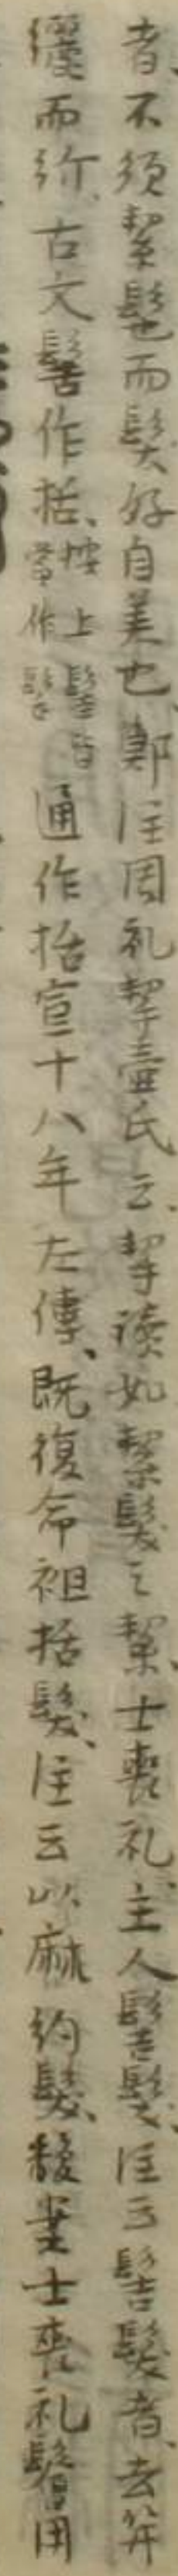 者、不須挈髢而髮好自美也、鄭注周礼挈壺氏云、挈讀如絜髮之絜、士喪礼、主人髻髮、注云髻髮者、去笄
纚而紒、古文髻作括、按上髻皆當作髺通作括宣十八年左傳、既復命袒括髮、注云以麻約髮、段業士喪礼髺用